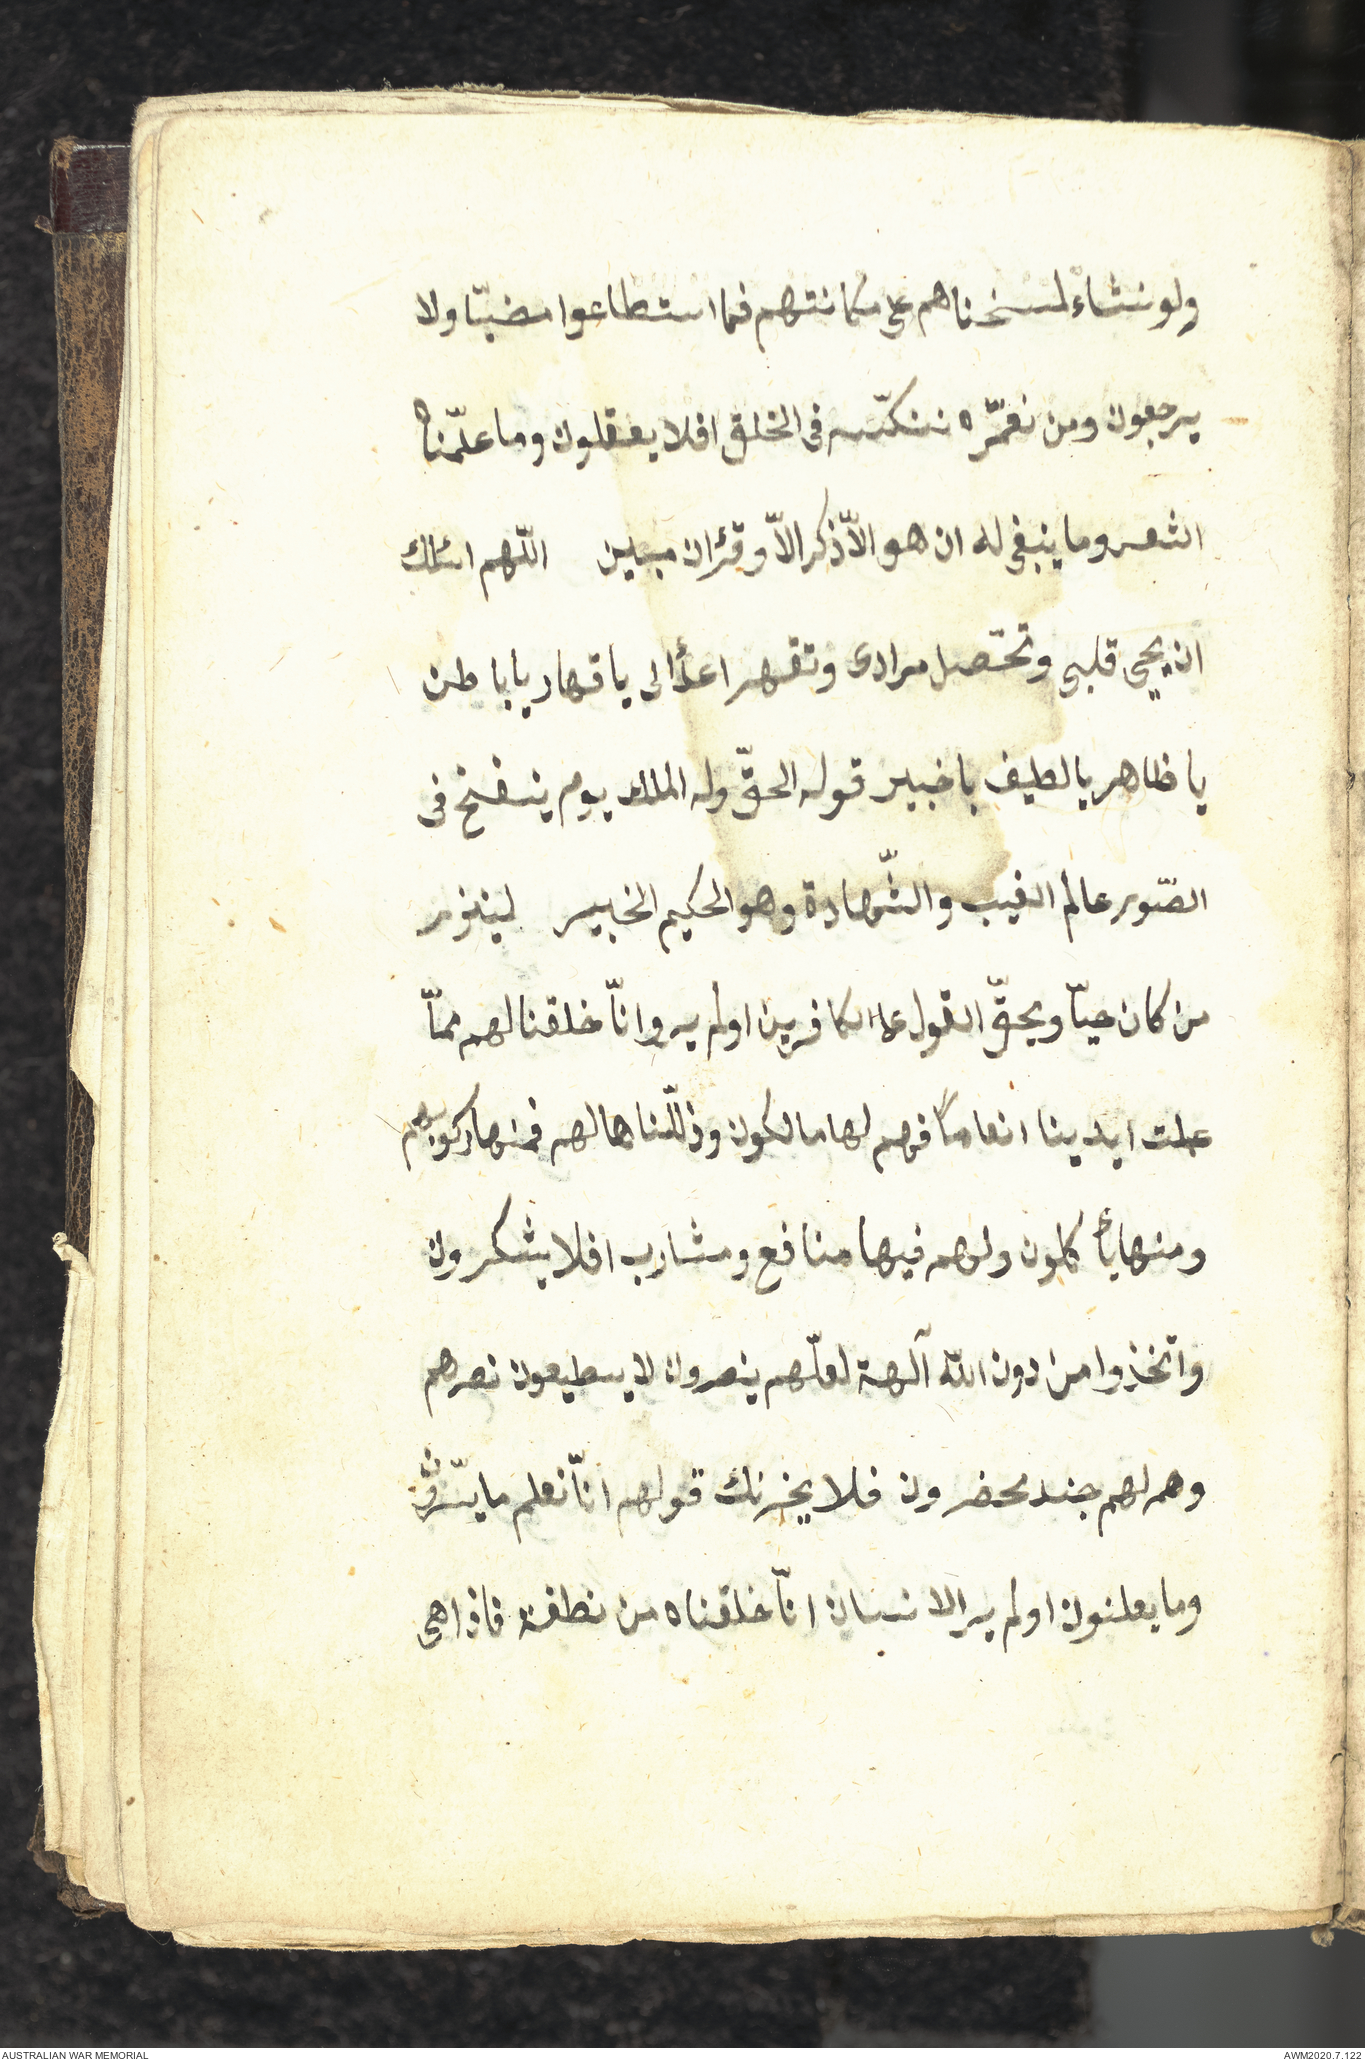 ولو نشاء لمسخناهم على مكانتهم فما استطاعوا مضيّا ولا
يرجعون ومن نعمّره ننكّسه فى الخلق افلا يعقلون وما علّمناه
الشعر وما ينبغى له ان هو الاّ ذكر الاّ وقرٔان مبين اللّهم اسٔلك
ان يحيى قلبى وتحّصل مرادى وتقهر اعدٔالى يا قهار يا باطن
يا ظاهر يا لطيف يا خبير قوله الحقّ وله الملك يوم ينفخ فى
الصّور عالم الغيب والشّهادة وهو الحكيم الخبير لينذر
من كان حيّا ويحقّ القول على الكافرين اولم يروا انّا خلقنا لهم ممّا
عملت ايدينا انعاماً فهم لها مالكون وذللّناها لهم فمنها ركوبهم
ومنها يأكلون ولهم فيها منافع ومشارب افلا يشكرون
واتخذوا من دون الله آلهة لعلّهم ينصرون لا يسطيعون نصرهم
وهم لهم جند محضرون فلا يحزنك قولهم انّا نعلم ما يسّرون
وما يعلنون اولم ير الانسان انّا خلقناه من نطفة فاذا هى
AUSTRALIAN WAR MEMORIAL
AWM2020.7.122